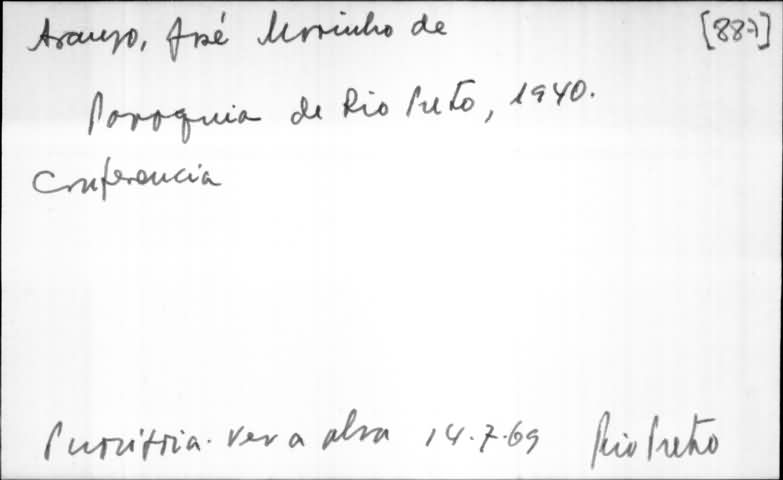 Araujo, José Marinho de [887]
Paroquia de Rio Preto, 1940.
Conferencia
ver a obra 14.7.69 Rio Preto